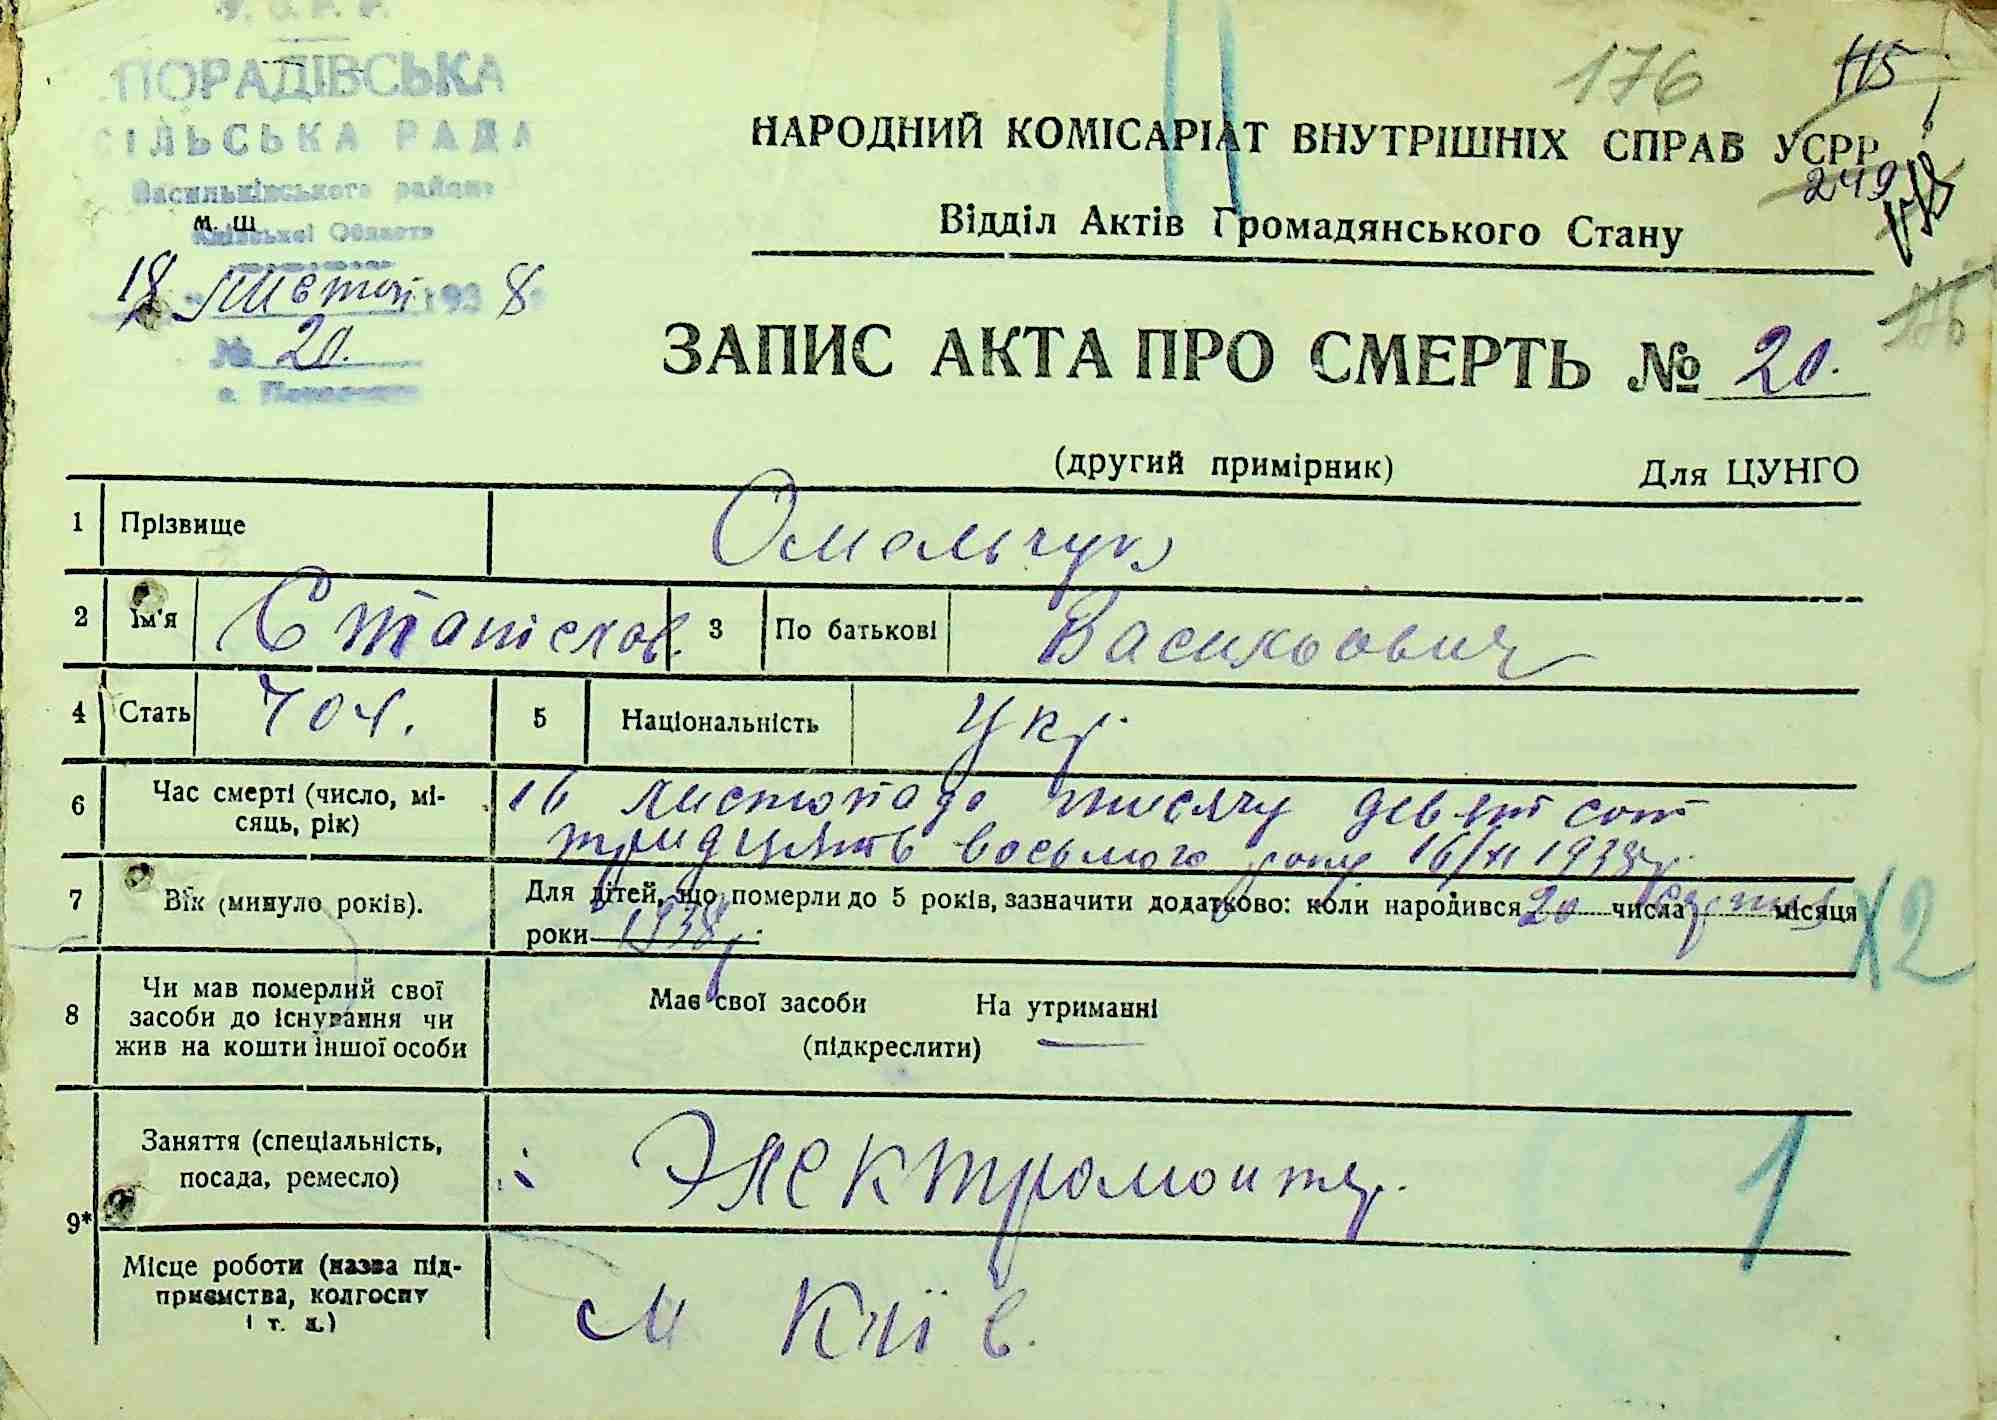 У. С. Р. Р.
ПОРАДІВСЬКА
СІЛЬСЬКА РАДА
Васильківського району
м. ш
Київської Області
18 листоп 1938
№ 20.
176
115
НАРОДНИЙ КОМІСАРІАТ ВНУТРІШНІХ СПРАВ УСРР
249
Відділ Актів Громадянського Стану
ЗАПИС АКТА ПРО СМЕРТЬ № 20.
(другий примірник) Для ЦУНГО
1 Прізвище Омельчук
2 Ім'я Станіслав. 3 По батькові Васильович
4 Стать чол. 5 Національність укр.
6 Час смерті (число, мі-
сяць, рік)
16 листопада тисячу девятсот
тридцять восьмого року 16/XI 1938р.
7 Вік (минуло років).
Для дітей, що померли до 5 років, зазначити додатково: коли народився 20 числа серпня місяця
роки 1938р.
Х2
8 Чи мав померлий свої
засоби до існування чи
жив на кошти іншої особи
Має свої засоби На утриманні
(підкреслити)
9*
Заняття (спеціальність,
посада, ремесло)
Электромонтер.
1
Місце роботи (назва під-
приємства, колгоспу
і т. д.)
м Київ.